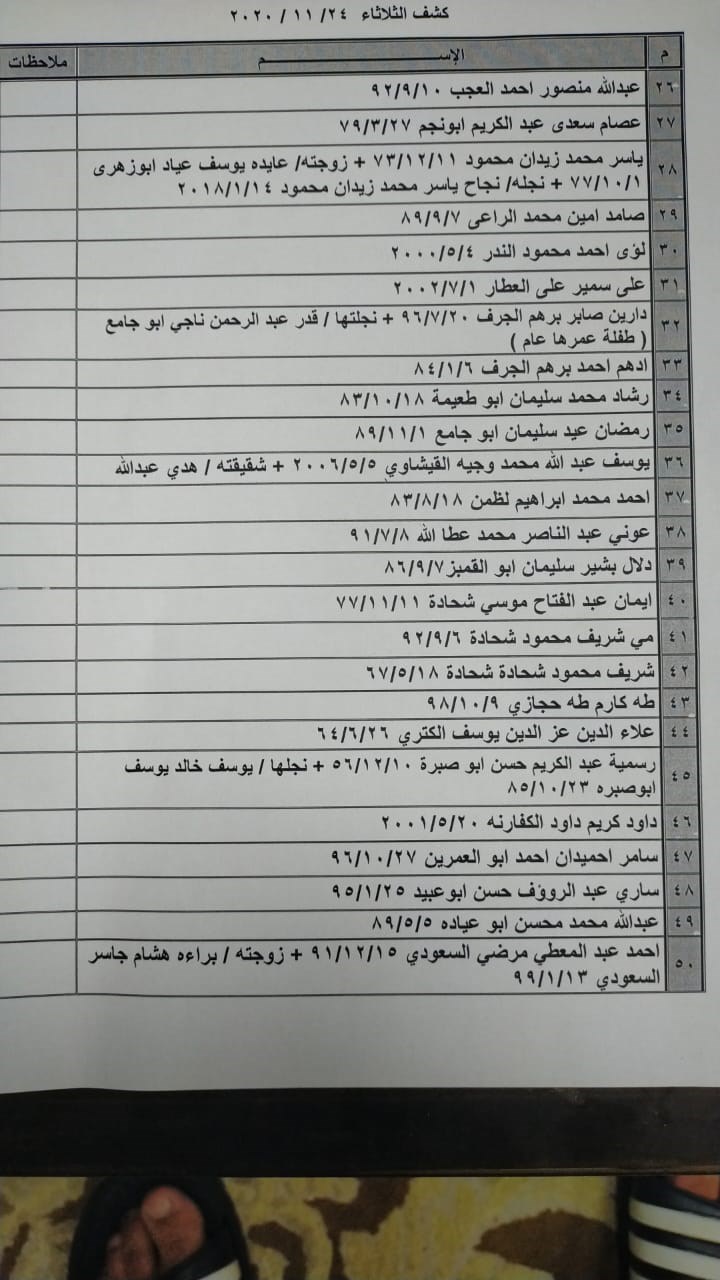 كشف الثلاثاء ٢٤/ ١١ / ٢٠٢٠
م الإســـــم ملاحظات
٢٦ عبدالله منصور احمد العجب ٩٢/٩/١٠
٢٧ عصام سعدى عبد الكريم ابونجم ٧٩/٣/٢٧
٢٨ ياسر محمد زيدان محمود ٧٣/١٢/١١ + زوجته/ عايده يوسف عياد ابوزهرى
٧٧/١٠/١ + نجله/ نجاح ياسر محمد زيدان محمود ٢٠١٨/١/١٤
٢٩ صامد امين محمد الراعى ٨٩/٩/٧
٣٠ لؤى احمد محمود الندر ٢٠٠٠/٥/٤
٣١ على سمير على العطار ٢٠٠٢/٧/١
٣٢ دارين صابر برهم الجرف ٩٦/٧/٢٠ + نجلتها / قدر عبد الرحمن ناجي ابو جامع
( طفلة عمرها عام )
٣٣ ادهم احمد برهم الجرف ٨٤/١/٦
٣٤ رشاد محمد سليمان ابو طعيمة ٨٣/١٠/١٨
٣٥ رمضان عيد سليمان ابو جامع ٨٩/١١/١
٣٦ يوسف عبد الله محمد وجيه القيشاوي ٢٠٠٦/٥/٥ + شقيقته / هدي عبدالله
٣٧ احمد محمد ابراهيم لظمن ٨٣/٨/١٨
٣٨ عوني عبد الناصر محمد عطا الله ٩١/٧/٨
٣٩ دلال بشير سليمان ابو القمبز ٨٦/٩/٧
٤٠ ايمان عبد الفتاح موسي شحادة ٧٧/١١/١١
٤١ مي شريف محمود شحادة ٩٢/٩/٦
٤٢ شريف محمود شحادة شحادة ٦٧/٥/١٨
٤٣ طه كارم طه حجازي ٩٨/١٠/٩
٤٤ علاء الدين عز الدين يوسف الكتري ٦٤/٦/٢٦
٤٥ رسمية عبد الكريم حسن ابو صبرة ٥٦/١٢/١٠ + نجلها / يوسف خالد يوسف
ابوصبره ٨٥/١٠/٢٣
٤٦ داود كريم داود الكفارنه ٢٠٠١/٥/٢٠
٤٧ سامر احميدان احمد ابو العمرين ٩٦/١٠/٢٧
٤٨ ساري عبد الرووؤف حسن ابوعبيد ٩٥/١/٢٥
٤٩ عبدالله محمد محسن ابو عياده ٨٩/٥/٥
٥٠ احمد عبد المعطي مرضي السعودي ٩١/١٢/١٥ + زوجته / براءه هشام جاسر
السعودي ٩٩/١/١٣